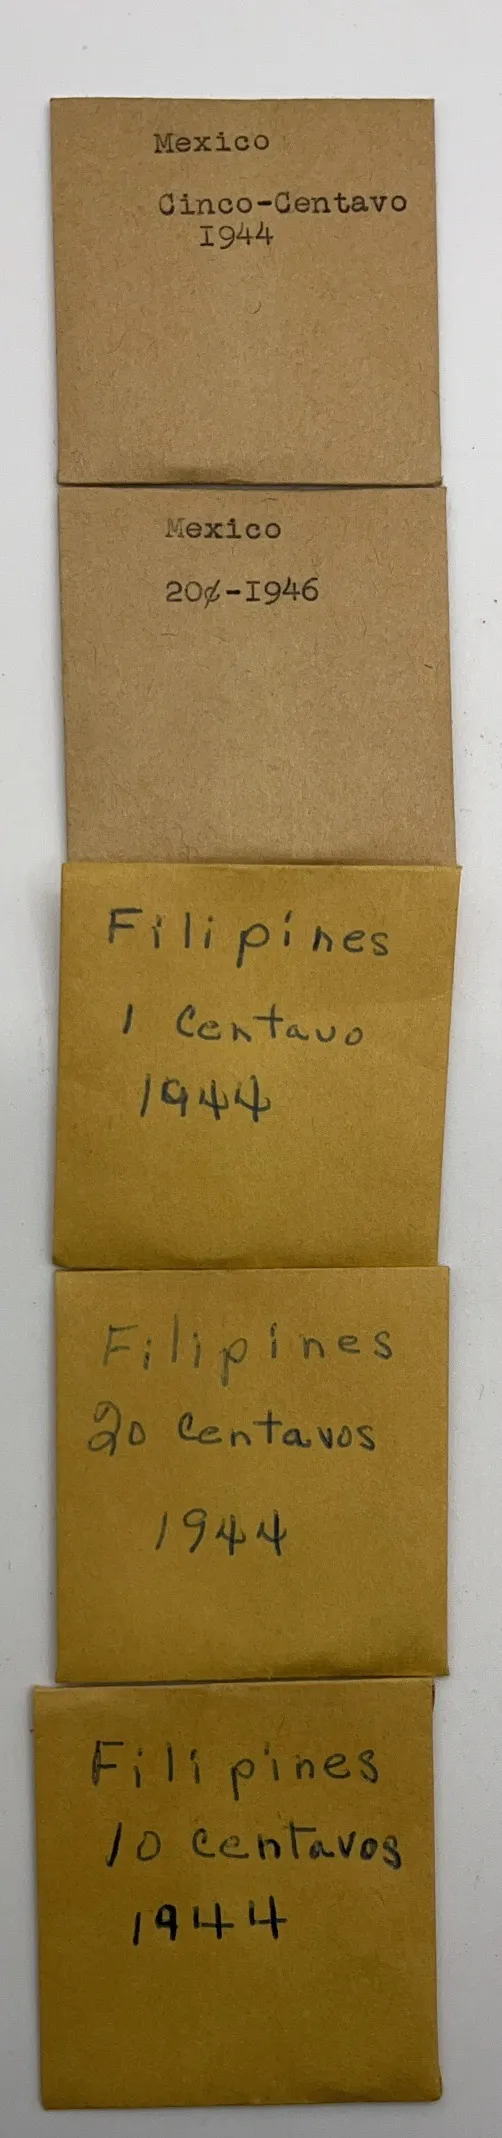 Mexico
Cinco-Centavo
I944
Mexico
20¢-I946
Filipines
1 Centavo
1944
Filipines
20 Centavos
1944
Filipines
10 centavos
1944